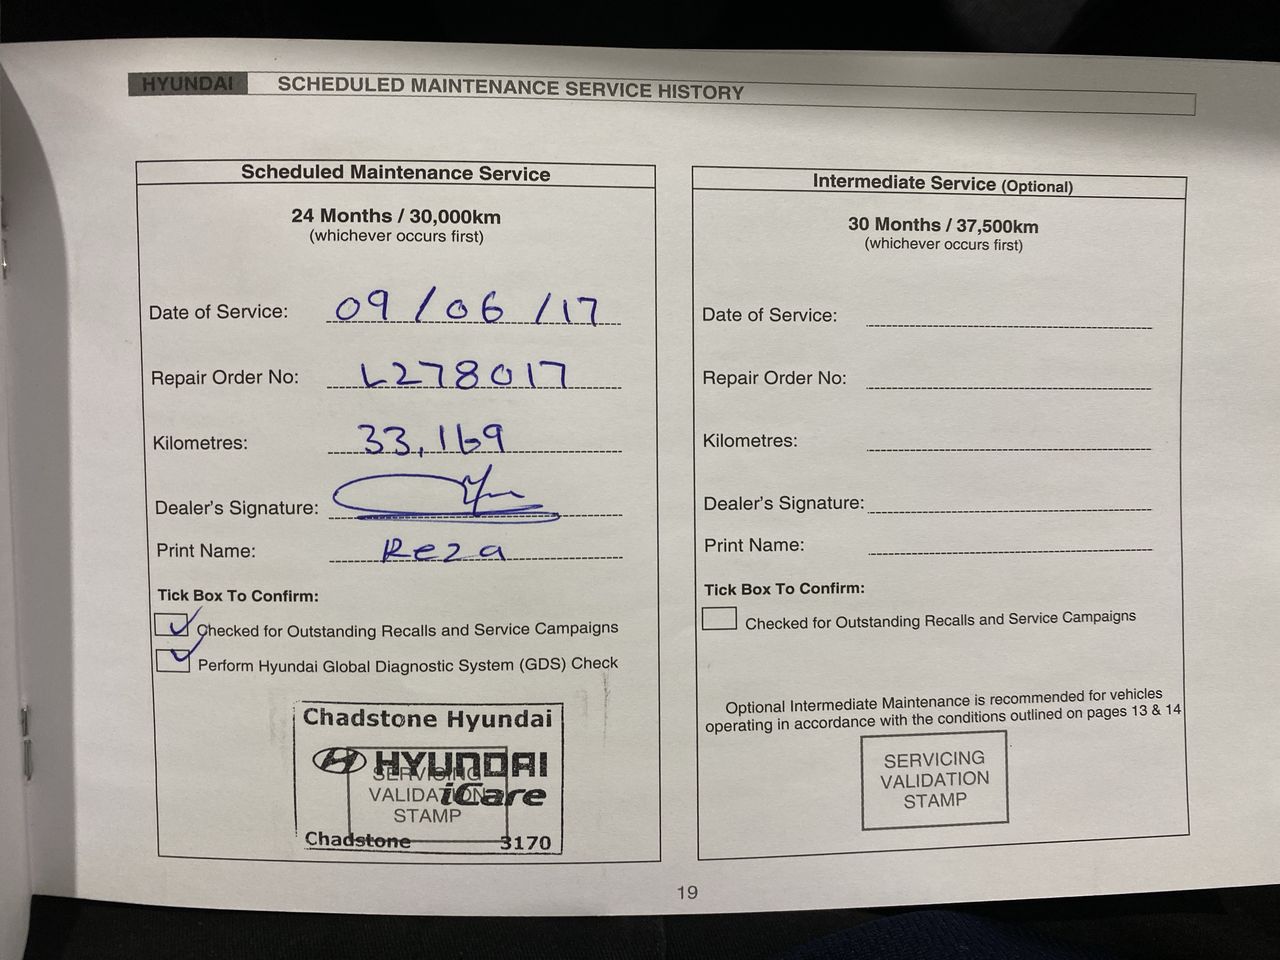 HYUNDAI SCHEDULED MAINTENANCE SERVICE HISTORY
Scheduled Maintenance Service
24 Months / 30,000km
(whichever occurs first)
Date of Service: 09 / 06 / 17
Repair Order No: L278017
Kilometres: 33,169
Dealer's Signature:
Print Name: Reza
Tick Box To Confirm:
Checked for Outstanding Recalls and Service Campaigns
Perform Hyundai Global Diagnostic System (GDS) Check
Chadstone Hyundai
HYUNDAI
iCare
SERVICING
VALIDATION
STAMP
Chadstone 3170
Intermediate Service (Optional)
30 Months / 37,500km
(whichever occurs first)
Date of Service:
Repair Order No:
Kilometres:
Dealer's Signature:
Print Name:
Tick Box To Confirm:
Checked for Outstanding Recalls and Service Campaigns
Optional Intermediate Maintenance is recommended for vehicles
operating in accordance with the conditions outlined on pages 13 & 14
SERVICING
VALIDATION
STAMP
19